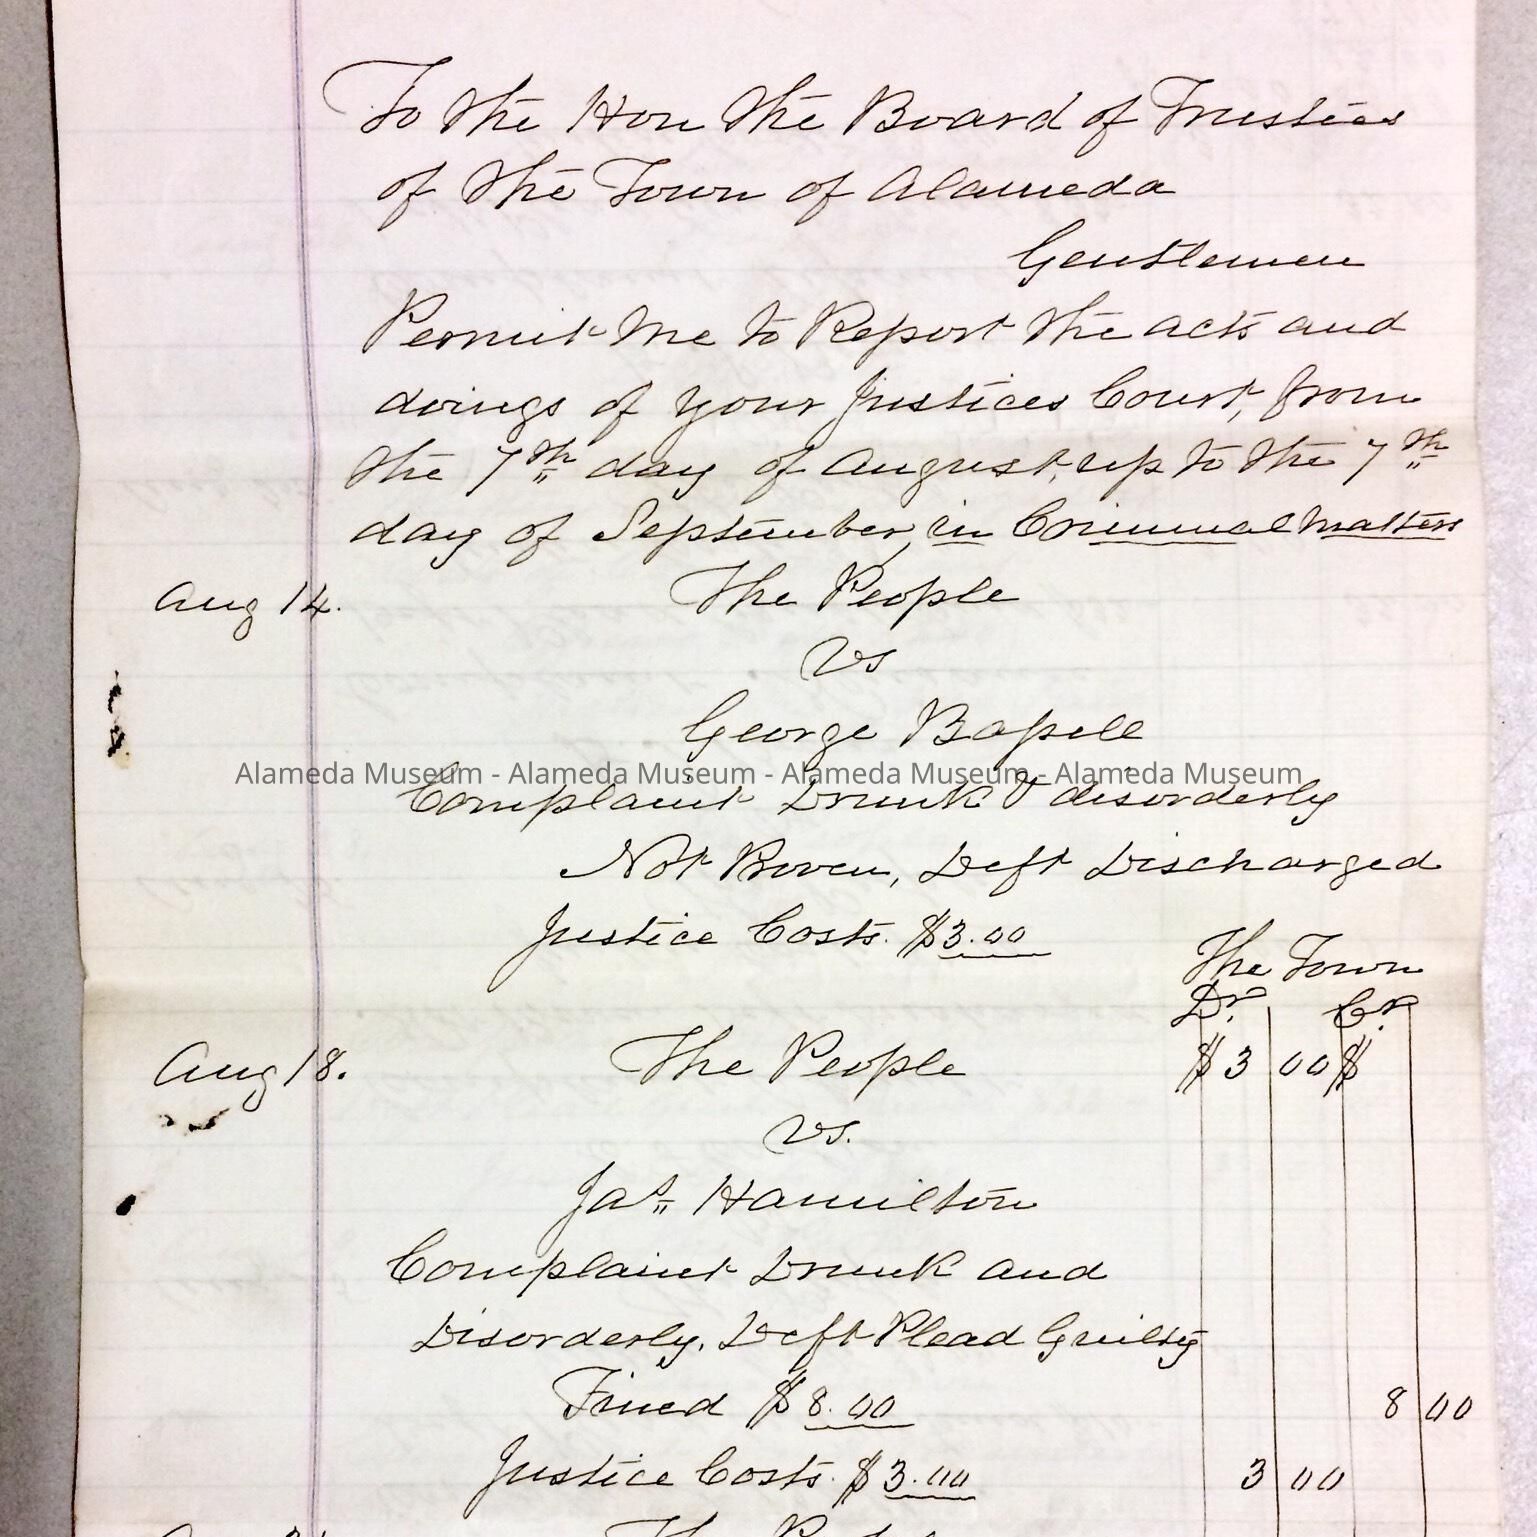 To the Hon the Board of Trustees
of the Town of Alameda
Gentlemen
Permit Me to Report the acts and
doings of your Justices Court, from
the 7th day of August, up to the 7th
day of September, in Criminal Matters
Aug 14. The People
vs
George
Alameda Museum - Alameda Museum - Alameda Museum - Alameda Museum
Complaint Drunk & disorderly
Not Proven, Deft Discharged
Justice Costs. $3.00
The Town
Dr. Cr.
Aug 18. The People $3 00 $
vs.
Jas. Hamilton
Complaint Drunk and
Disorderly. Deft Plead Guilty
Fined $8.00 8 00
Justice Costs. $3.00 3 00
The